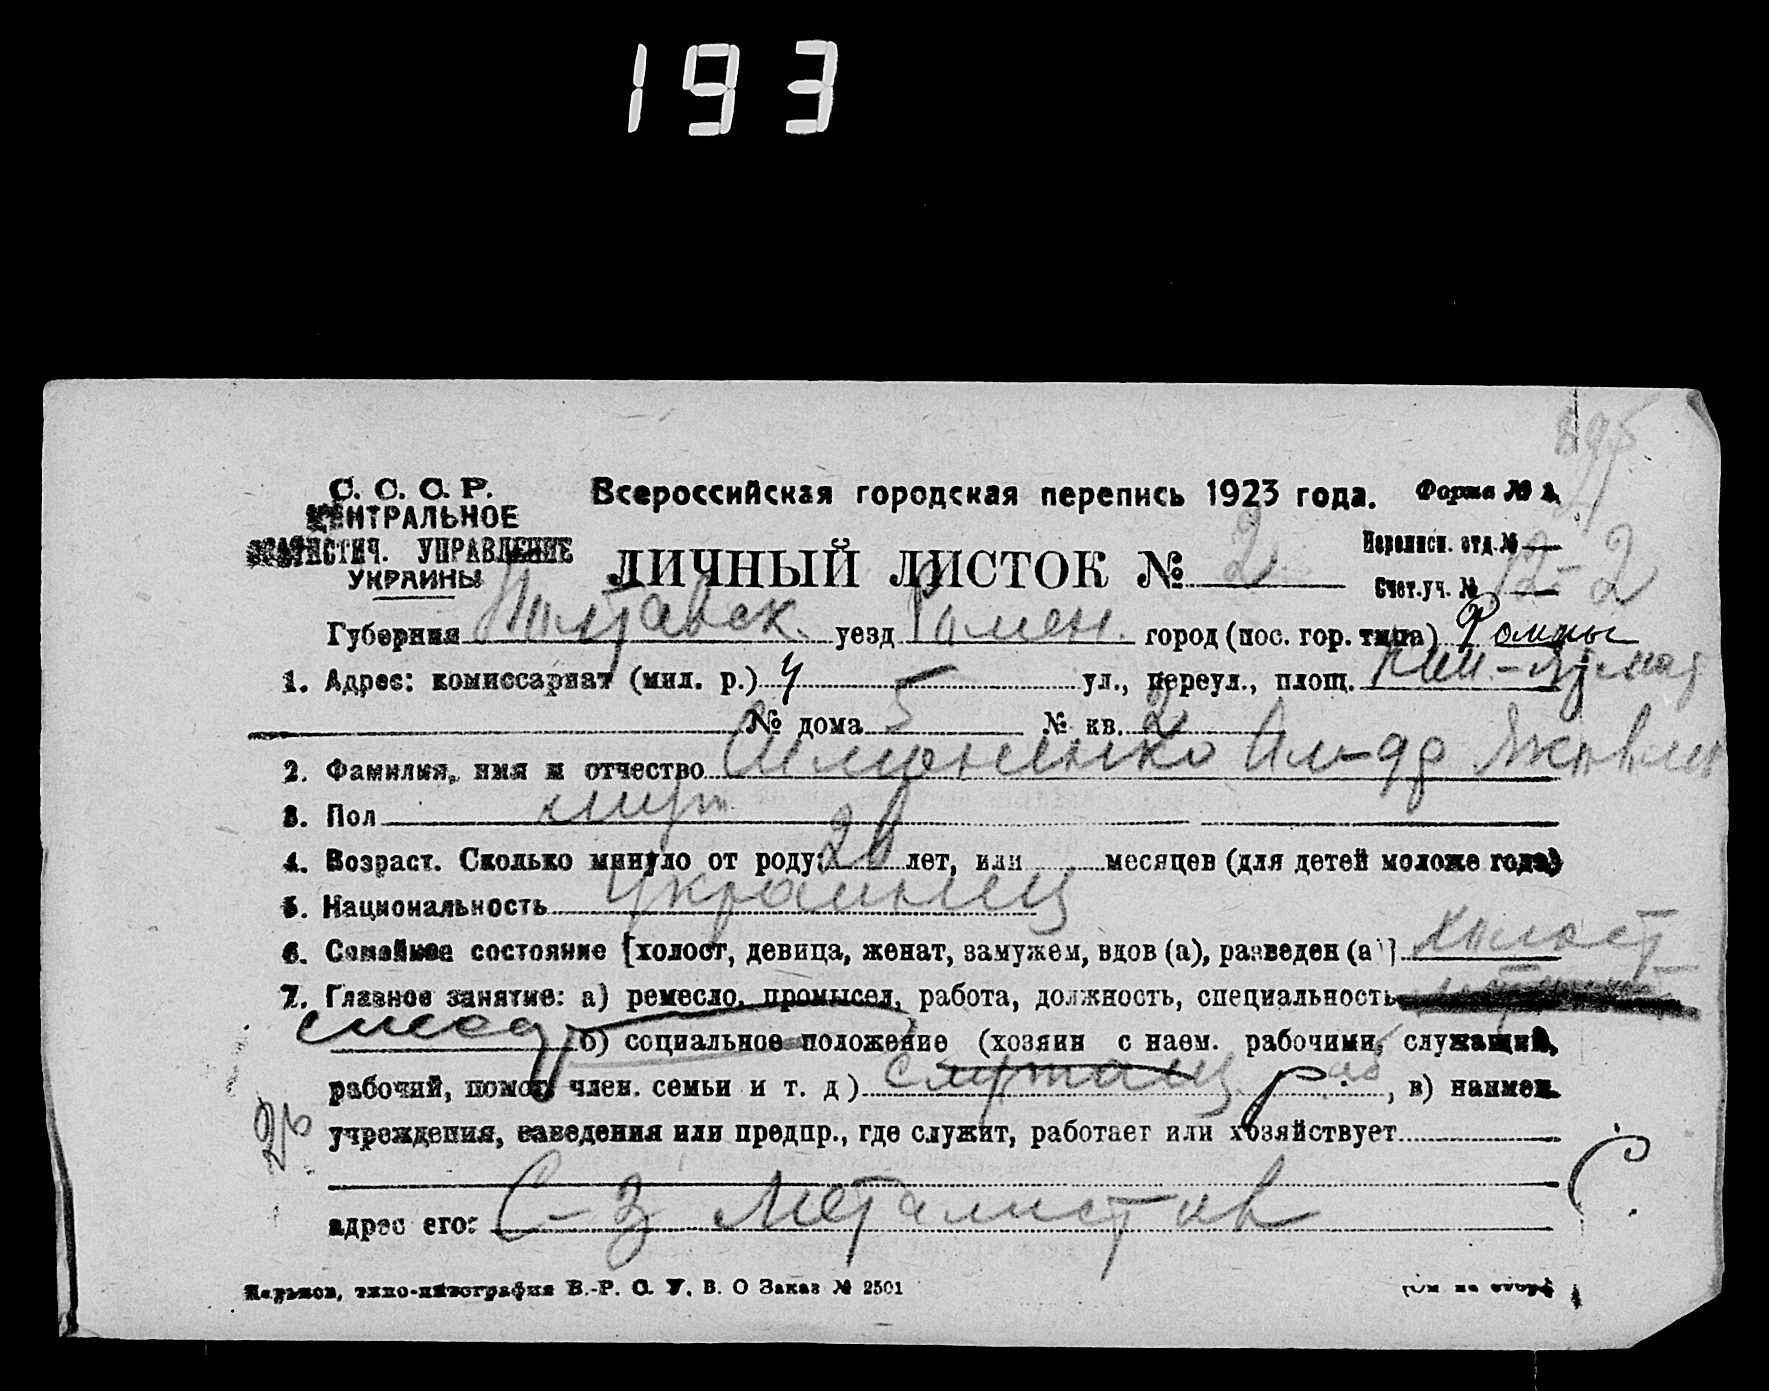 193
С. С. С. Р.
ЦЕНТРАЛЬНОЕ
СТАТИСТИЧ. УПРАВЛЕНИЕ
УКРАИНЫ
Всероссийская городская перепись 1923 года.
Форма № 1
ЛИЧНЫЙ ЛИСТОК № 2
Переписн. отд. №
Счет.уч. № 12-2
Губерния Полтавск. уезд Ромен. город (пос. гор. типа) Ромны
1. Адрес: комиссариат (мил. р.) ул., переул., площ.
№ дома 5 № кв. 2
2. Фамилия, имя и отчество Ал-др Яковлев
3. Пол муж
4. Возраст. Сколько минуло от роду: лет, или месяцев (для детей моложе года)
5. Национальность украинец
6. Семейное состояние [холост, девица, женат, замужем, вдов (а), разведен (а)] холост
7. Главное занятие: а) ремесло, промысел, работа, должность, специальность
б) социальное положение (хозяин с наем. рабочими, служащий,
рабочий, помог. член. семьи и т. д) служащ раб , в) наимен.
учреждения, заведения или предпр., где служит, работает или хозяйствует
адрес его: С-з Металистов
Харьков, типо-литография В.-Р. С. У. В. О Заказ № 2501